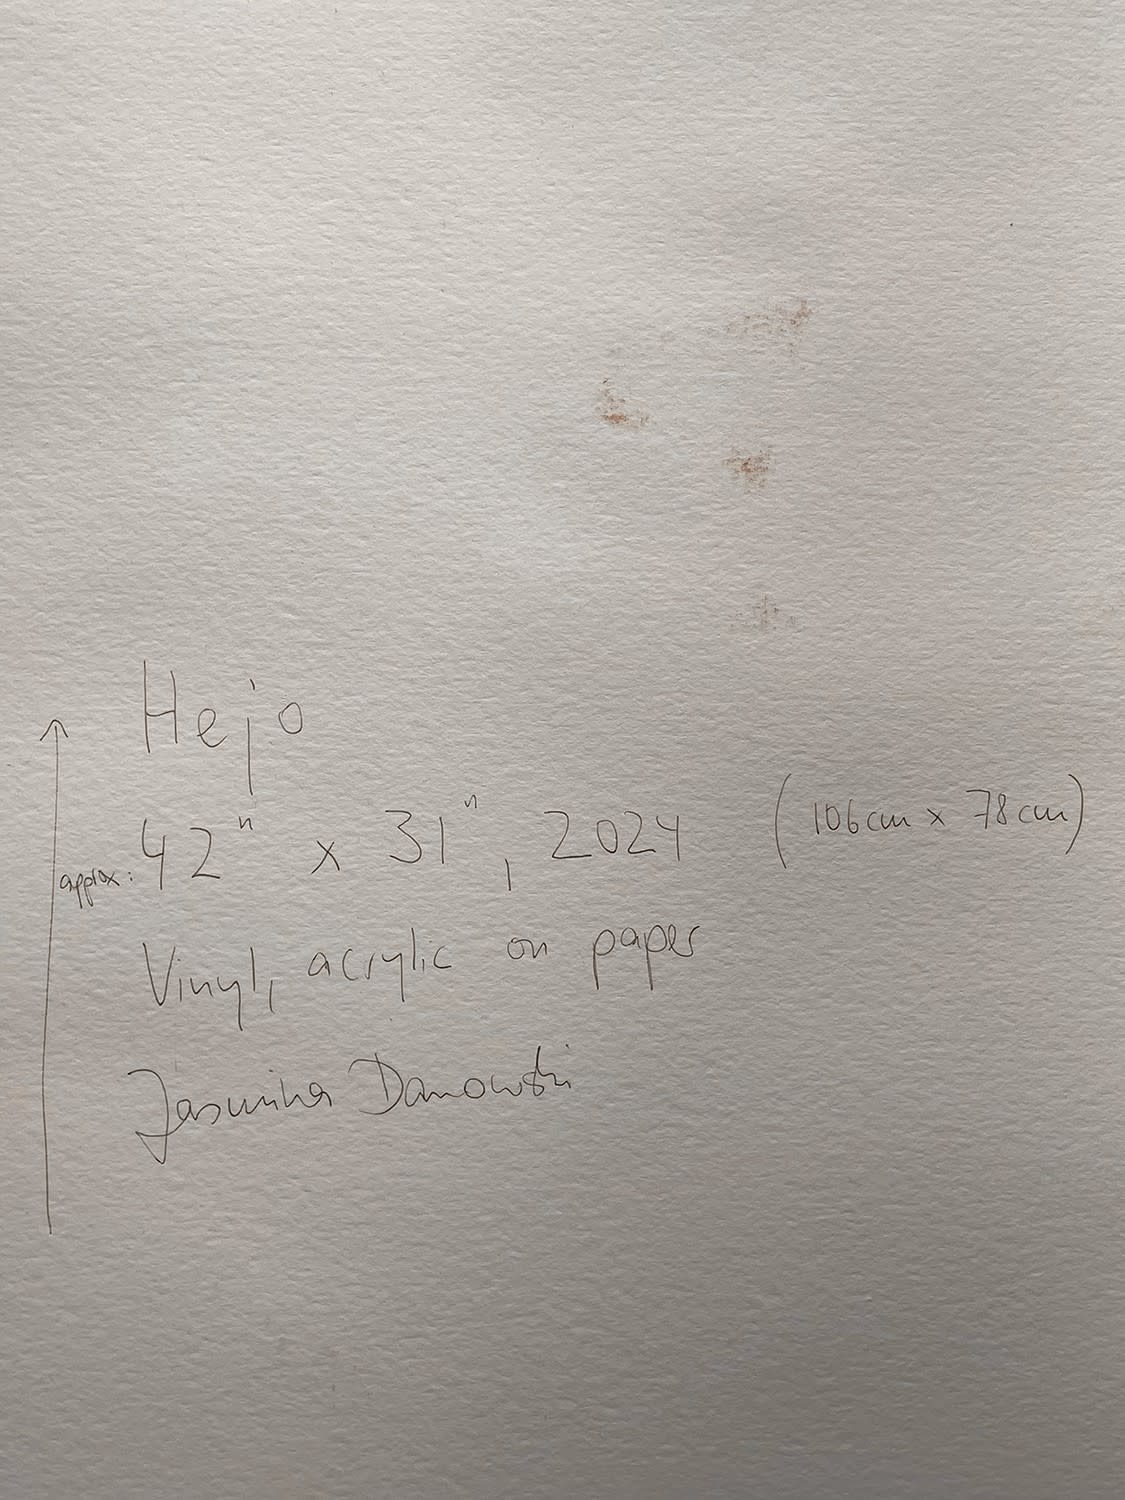 Hejo
approx: 42" x 31", 2024 (106cm x 78cm)
Vinyl, acrylic on paper
Jasmina Danowski